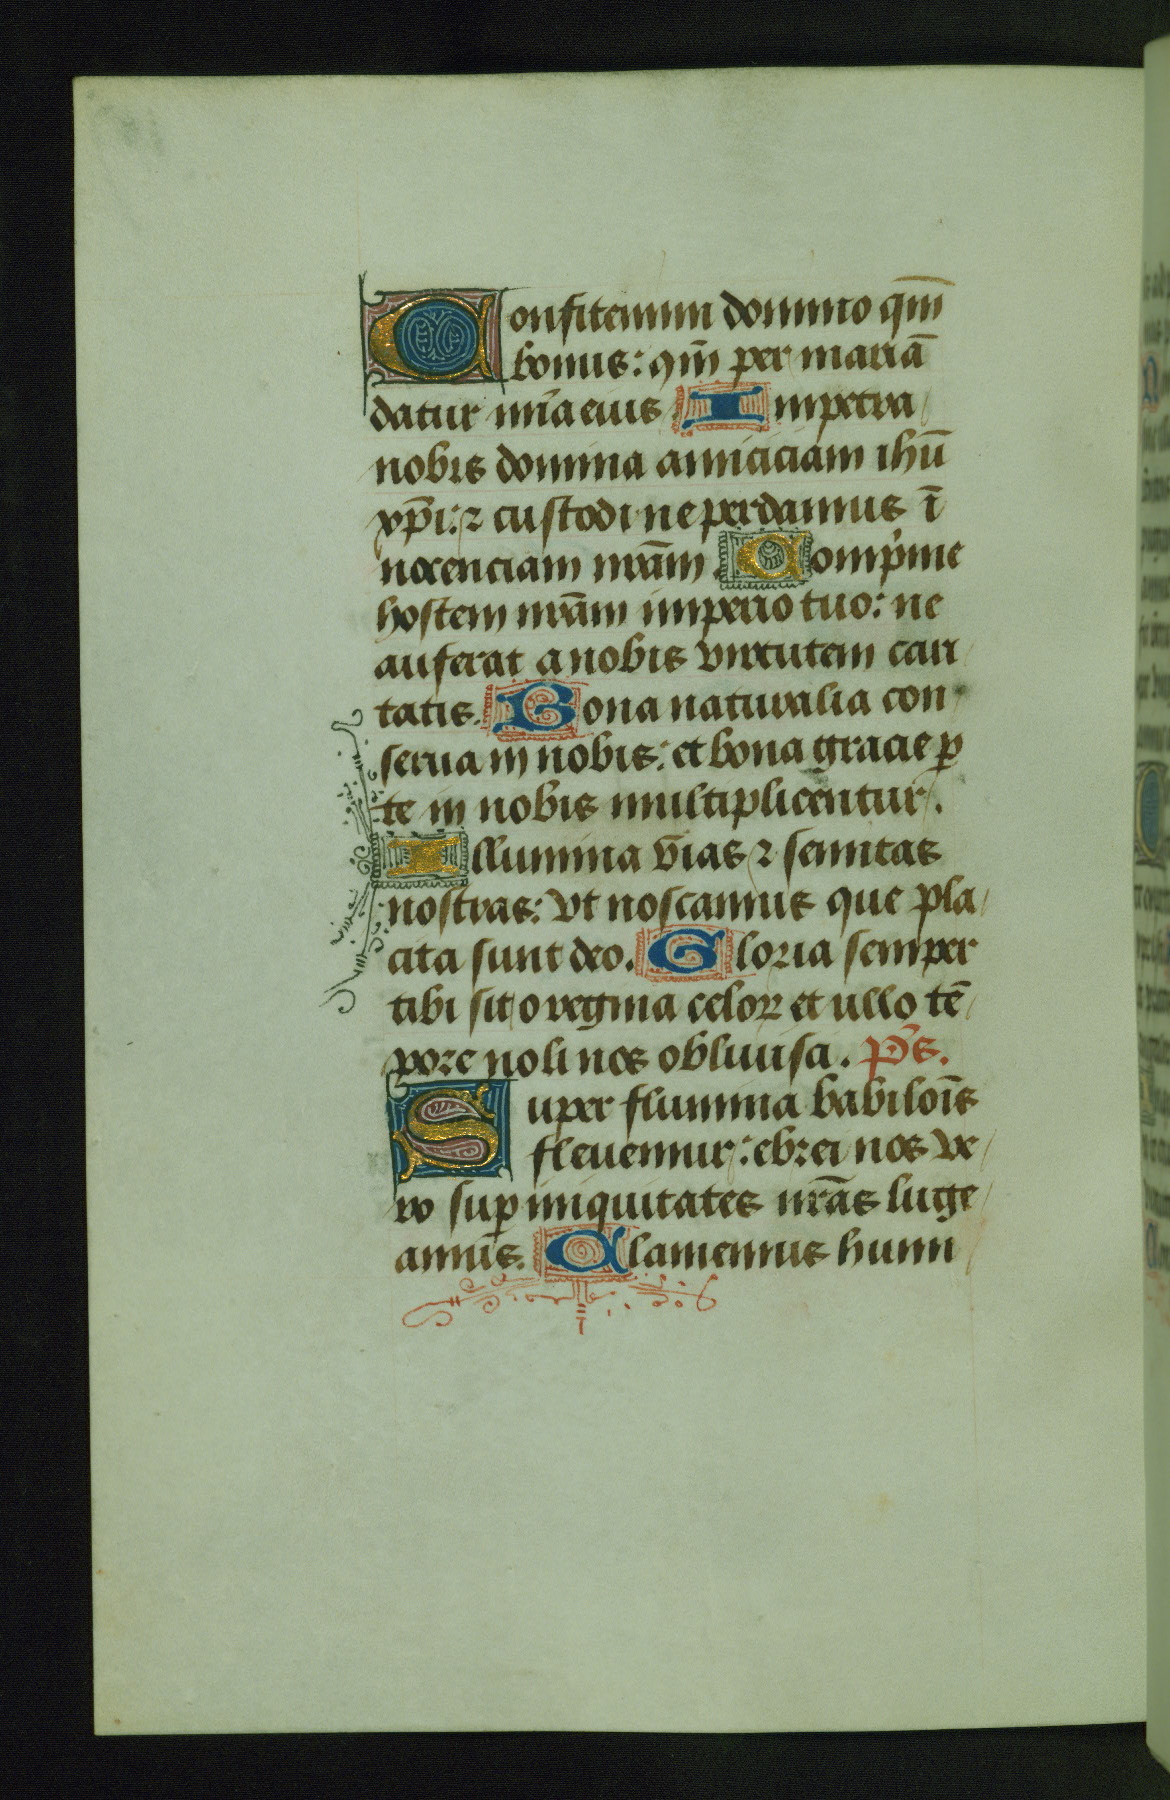 Confitemini domino qm̄
bonus: qm̄ per mariā
datur mīa eius Impetra
nobis domina amiciciam ihū
xp̄i: ⁊ custodi ne perdamus ī
nocenciam nrām. Comp̄me
hostem nrām imperio tuo: ne
auferat a nobis virtutem cari
tatis. Bona naturalia con
serua in nobis: et bona gracie ꝑ
te in nobis multiplicentur.
Illumina v̄ias ⁊ semitas
nostras: vt noscamus que pla
cita sunt deo. Gloria semper
tibi sit o regina celoꝝ et ullo tē
pore noli nos obliuisci. Ps̄.
Super flumina babiloīs
fleuemur: ebrei nos ve
ro suꝑ iniquitates nrās luge
amus. Clamemus humi